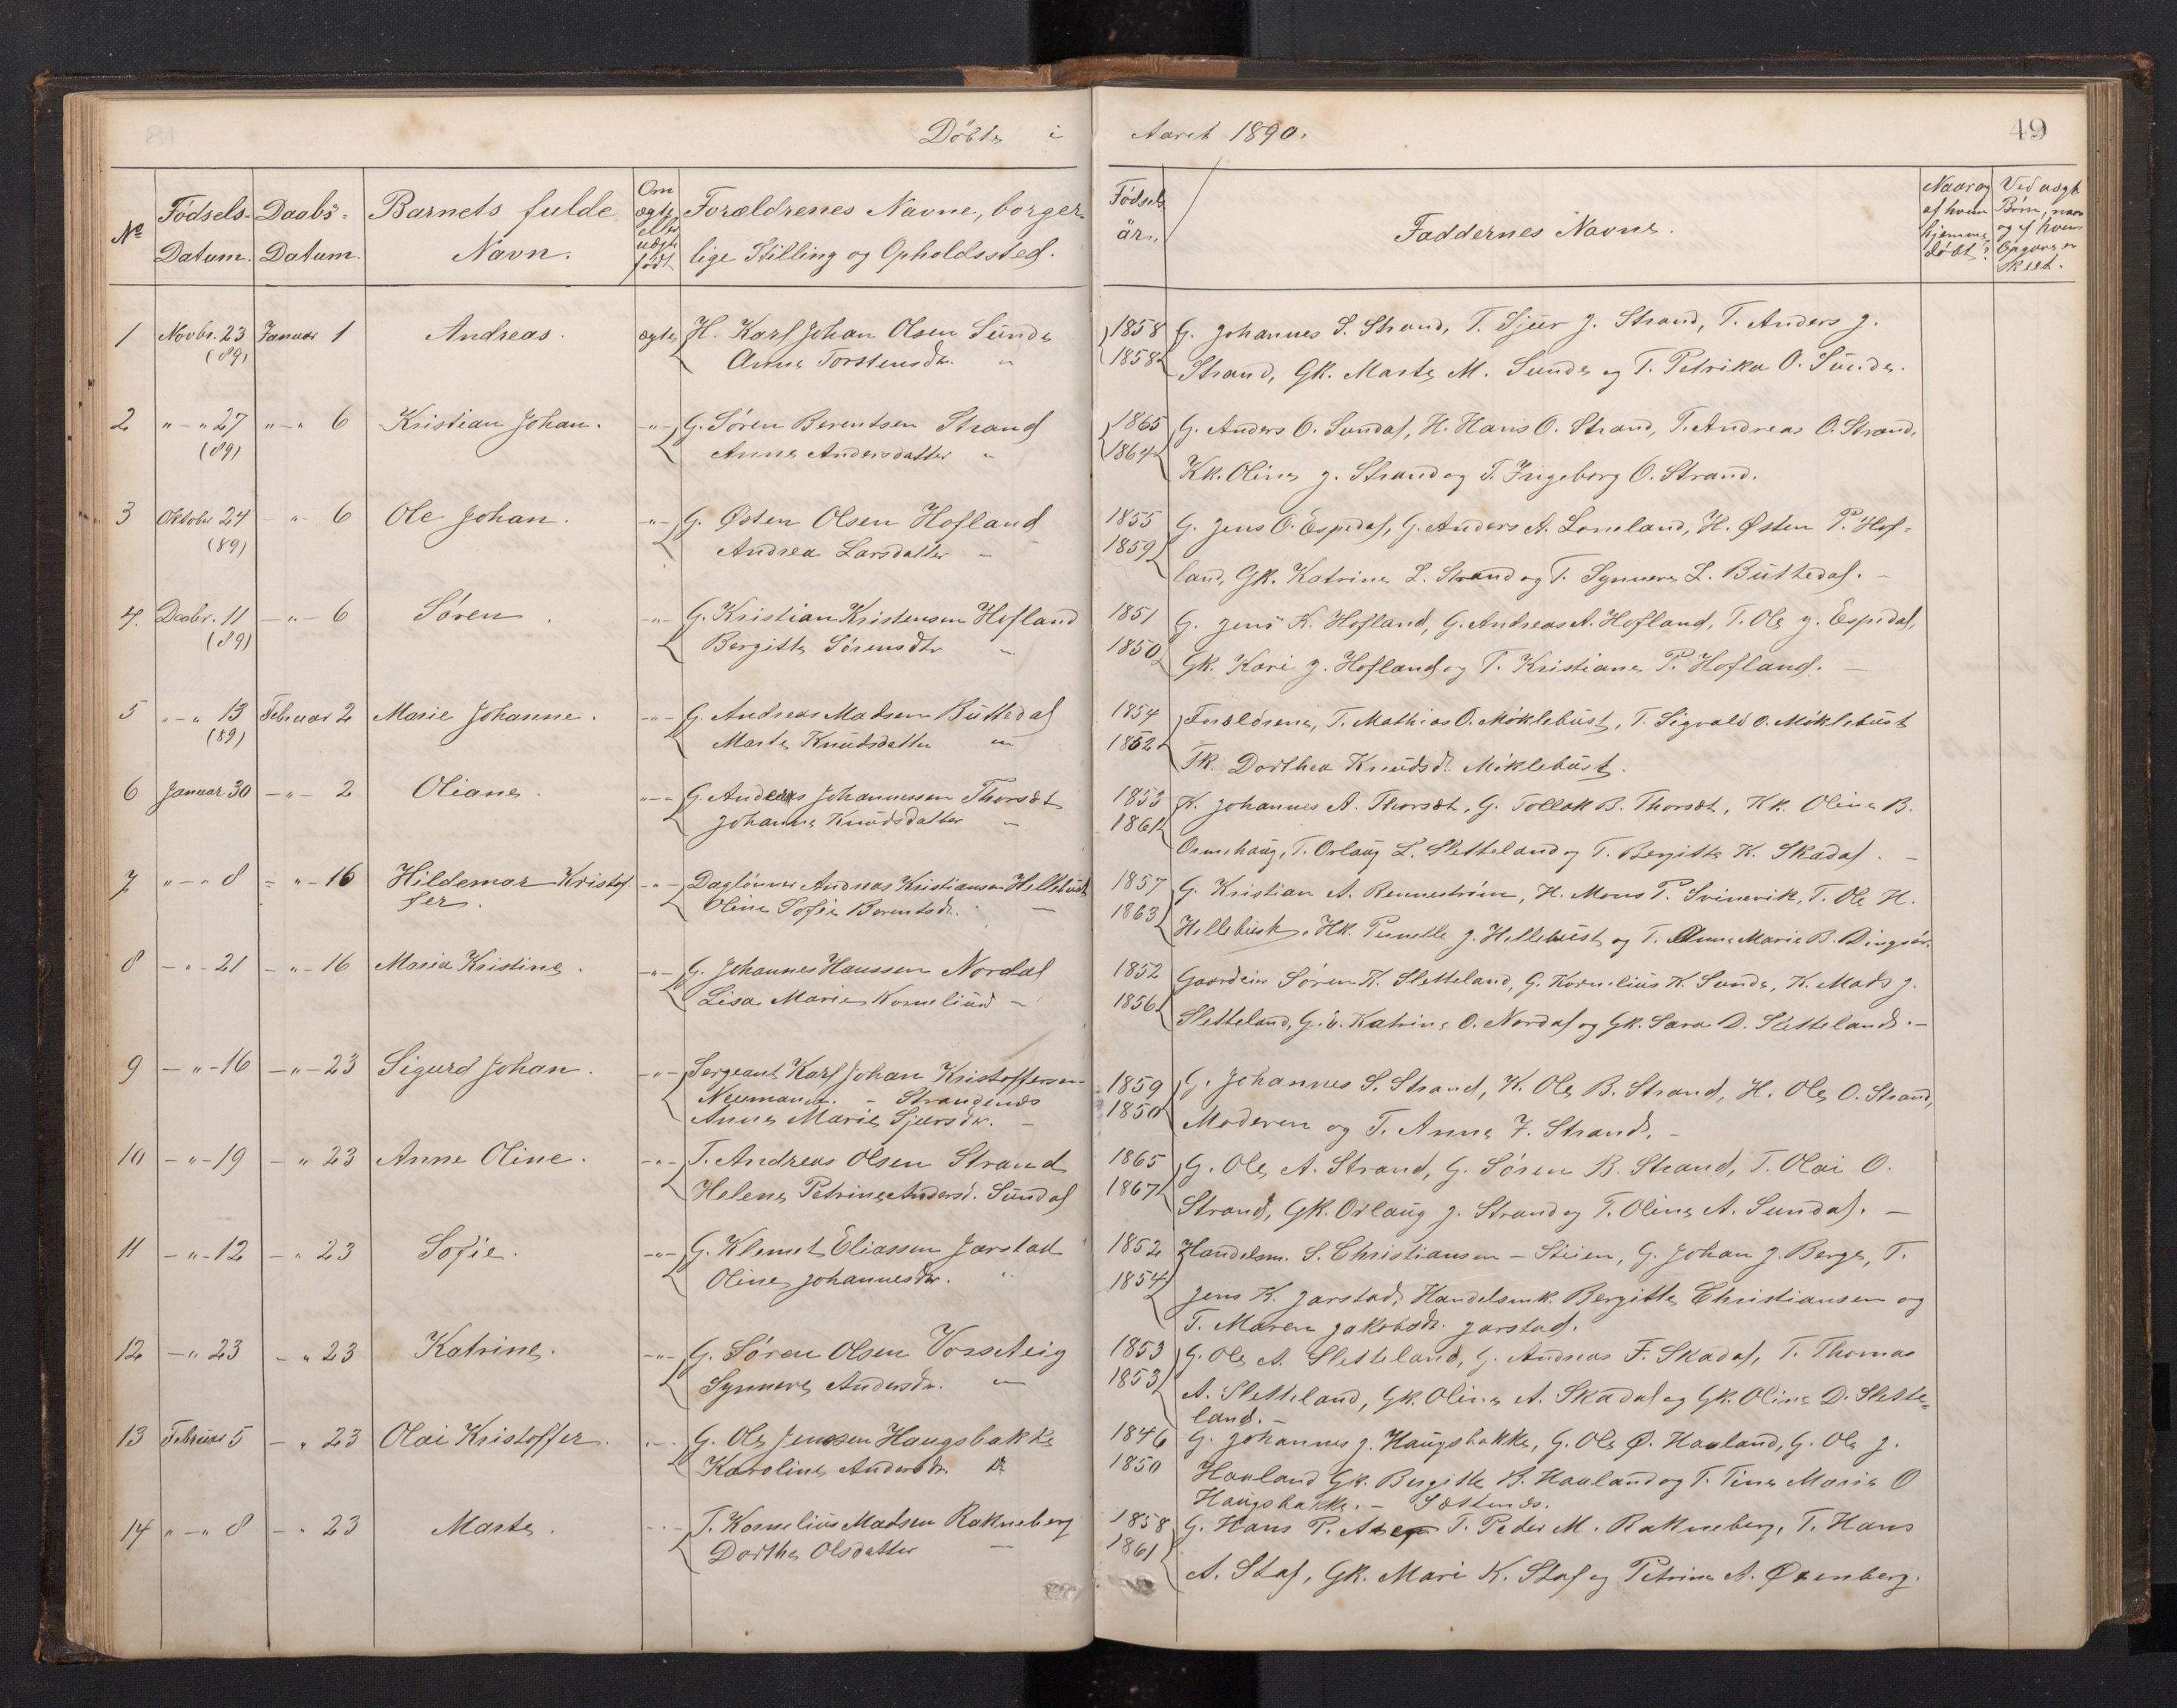 Döbte i Aaret 1890.
49
No
Födsels-Datum.
Daabs-Datum.
Barnets fulde Navn.
Om ægte eller uægte födt
Forældrenes Navne, borgerlige Stilling og Opholdssted.
Födsels år.
Faddernes Navne.
Naar og af hvem hjemmedöbt?
Ved uægte Börn, naar og af hvem Opgave er skeet.
1 Novbr. 23 (89) Januar 1 Andreas. ægte H. Karl Johan Olsen Sunde 1858 G. Johannes S. Strand, T. Sjur J. Strand, T. Anders J.
Anne Torstensdtr. " 1858 Strand, Gk. Marte M. Sunde og T. Petrika O. Sunde.
2 " - " 27 (89) " - " 6 Kristian Johan. -"- G. Sören Berentsen Strand 1865 G. Anders O. Sundal, H. Hans O. Strand, T. Andreas O. Strand,
Anne Andersdatter " 1864 Kk. Oline J. Strand og T. Ingeborg O. Strand.
3 Oktober 24 (89) - " - 6 Ole Johan. -"- G. Østen Olsen Hofland 1855 G. Jens O. Espedal, G. Anders A. Loneland, H. Østen P. Hof-
Andrea Larsdatter - 1859 land, Gk. Katrine L. Strand og T. Synneve L. Buttedal. -
4. Decbr. 11 (89) - " - 6 Sören. -"- G. Kristian Kristensen Hofland 1851 G. Jens K. Hofland, G. Andreas A. Hofland, T. Ole J. Espedal,
Bergitte Sörensdtr " 1850 Gk. Kari J. Hofland og T. Kristiane P. Hofland. -
5 " - " 13 (89) Februar 2 Marie Johanne. -"- G. Andreas Madsen Buttedal 1854 Forældrene, T. Mathias O. Möklebust, T. Sigvald O. Möklebust
Marte Knudsdatter " 1852 Tk. Dorthea Knudsd. Möklebust.
6 Januar 30 - " - 2 Oliane. "-" G. Andreas Johannessen Thorsæt 1853 K. Johannes A. Thorsæt, G. Tollak B. Thorsæt, Kk. Oline B.
Johanne Knudsdatter " 1861 Ormehaug, T. Orlaug L. Sletteland og T. Bergitte K. Skadal. -
7 " - " 8 - " - 16 Hildemar Kristof- -"- Daglönner Andreas Kristiansen Hellebust 1857 G. Kristian A. Renneström, H. Mons P. Svinevik, T. Ole H.
fer. Oline Sofie Berentsd. - 1863 Hellebust, Hk. Pernelle J. Hellebust og T. Anne Marie B. Dingsör.
8 - " - 21 - " - 16 Maria Kristine. -"- G. Johannes Hanssen Nordal 1852 Gaardeier Sören K. Sletteland, G. Kornelius K. Sunde, K. Mads J.
Lisa Marie Korneliusd - 1856 Sletteland, Katrine O. Nordal og Gk. Sara D. Sletteland. -
9 - " - 16 - " - 23 Sigurd Johan. -"- Sergeant Karl Johan Kristoffersen 1859 G. Johannes S. Strand, K. Ole B. Strand, H. Ole O. Strand,
Neumann. - Strandenæs 1850 Moderen og T. Anne J. Strand. -
Anne Marie Sjursdtr. -
10 - " - 19 - " 23 Anne Oline. -"- T. Andreas Olsen Strand 1865 G. Ole A. Strand, G. Sören B. Strand, T. Olai O.
Helene Petrine Andersd. Sundal 1867 Strand, Gk. Orlaug J. Strand og T. Oline A. Sundal. -
11 - " - 12 - " 23 Sofie. -"- G. Klemet Eliassen Jarstad 1852 Handelsm. S. Christiansen - Steien, G. Johan J. Berge, T.
Oline Johannesdtr. " 1854 Jens K. Jarstad, Handelsmk. Bergitte Christiansen og
T. Maren Jakobsdtr. Jarstad.
12 - " 23 - " 23 Katrine. -"- G. Sören Olsen Vossteig 1853 G. Ole A. Sletteland, G. Andreas F. Skadal, T. Thomas
Synneve Andersdtr. " 1853 A. Sletteland, Gk. Oline A. Skadal og Gk. Oline D. Slette-
land. -
13 Februar 5 - " 23 Olai Kristoffer. -"- G. Ole Jenssen Haugsbakke 1846 G. Johannes J. Haugsbakke, G. Ole Ø. Hauland, G. Ole J.
Karoline Andersdtr. 1850 Hauland Gk. Bergitte B. Hauland og T. Tine Marie O
Haugsbakke. -
14 " - " 8 - " 23 Marte. -"- T. Kornelius Madsen Rakneberg 1858 G. Hans P. T. Peder M. Rakneberg, T. Hans
Dorthe Olsdatter - 1861 A. Stal, Gk. Mari K. Stal og Petrine A. Øxenberg.